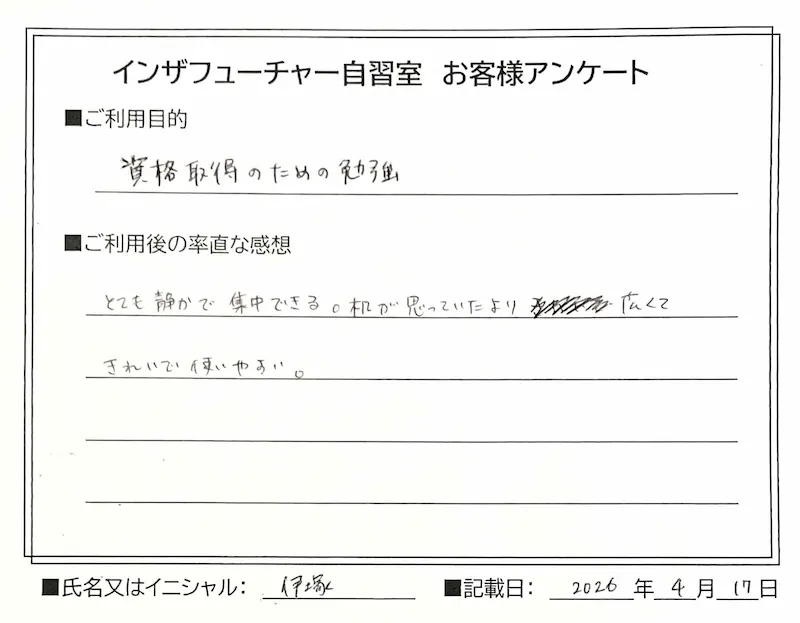 インザフューチャー自習室 お客様アンケート
■ご利用目的
資格取得のための勉強
■ご利用後の率直な感想
とても静かで集中できる。机が思っていたより 広くて
きれいで使いやすい。
■氏名又はイニシャル： 伊塚
■記載日： 2026 年 4 月 17 日